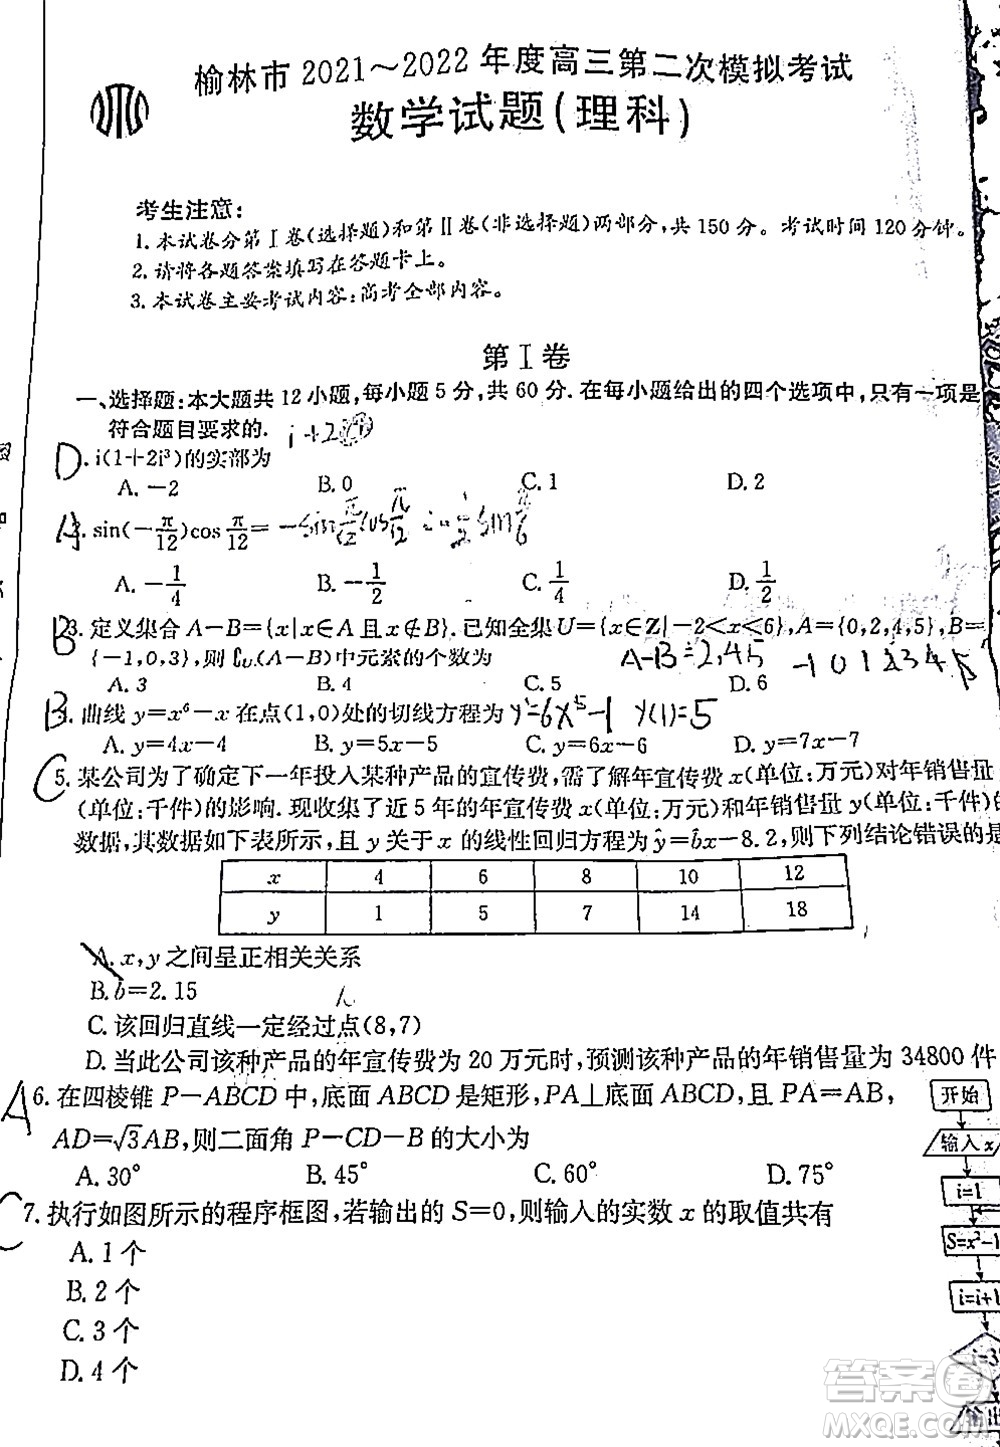 榆林市2021～2022年度高三第二次模拟考试
数学试题(理科)
考生注意:
1.本试卷分第Ⅰ卷(选择题)和第Ⅱ卷(非选择题)两部分,共150分。考试时间120分钟。
2.请将各题答案填写在答题卡上。
3.本试卷主要考试内容:高考全部内容。
第Ⅰ卷
一、选择题:本大题共12小题,每小题5分,共60分.在每小题给出的四个选项中,只有一项是
符合题目要求的. i+2
D .i(1+2i³)的实部为
A.-2 B.0 C.1 D.2
A .sin(-π/12)cos π/12= -sin π/12 cos π/12 = -1/2 sin π/6
A.-1/4 B.-1/2 C.1/4 D.1/2
B 3.定义集合A-B={x|x∈A且x∉B}.已知全集U={x∈Z|-2<x<6},A={0,2,4,5},B=
{-1,0,3},则∁U(A-B)中元素的个数为 A-B=2,4,5 -1 0 1 2 3 4 5
A.3 B.4 C.5 D.6
B 4.曲线y=x⁶-x在点(1,0)处的切线方程为 y'=6x⁵-1 y'(1)=5
A.y=4x-4 B.y=5x-5 C.y=6x-6 D.y=7x-7
C 5.某公司为了确定下一年投入某种产品的宣传费,需了解年宣传费x(单位:万元)对年销售量
(单位:千件)的影响.现收集了近5年的年宣传费x(单位:万元)和年销售量y(单位:千件)的
数据,其数据如下表所示,且y关于x的线性回归方程为ŷ=b̂x-8.2,则下列结论错误的是
x 4 6 8 10 12
y 1 5 7 14 18
A.x,y之间呈正相关关系
B.b̂=2.15
C.该回归直线一定经过点(8,7)
D.当此公司该种产品的年宣传费为20万元时,预测该种产品的年销售量为34800件
A 6.在四棱锥P-ABCD中,底面ABCD是矩形,PA⊥底面ABCD,且PA=AB,
AD=√3AB,则二面角P-CD-B的大小为
A.30° B.45° C.60° D.75°
C 7.执行如图所示的程序框图,若输出的S=0,则输入的实数x的取值共有
A.1个
B.2个
C.3个
D.4个
开始
输入x
i=1
S=x²-1
i=i+1
i=3
答案圈
MXQE.COM